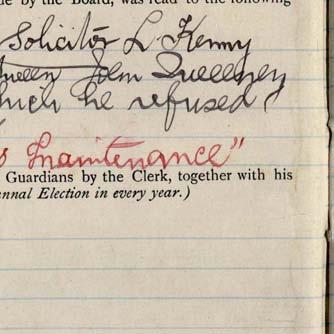 de by the Board, was read to the following
Solicitor L. Kenny
John Sweeney
which he refused
Maintenance"
Guardians by the Clerk, together with his
nnual Election in every year.)